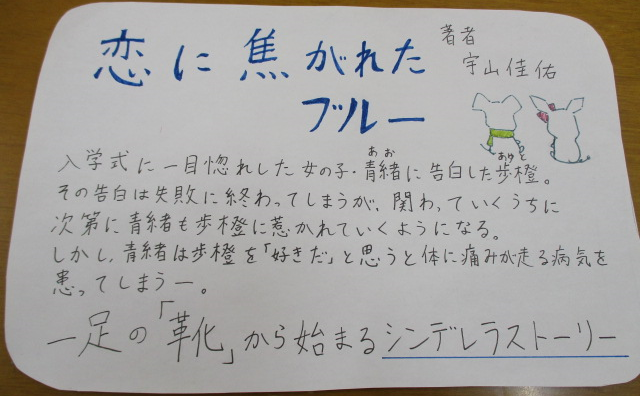 恋に焦がれた
ブルー
著者
宇山佳佑
入学式に一目惚れした女の子・青緒に告白した歩橙。
あお
あゆと
その告白は失敗に終わってしまうが、関わっていくうちに
次第に青緒も歩橙に惹かれていくようになる。
しかし、青緒は歩橙を「好きだ」と思うと体に痛みが走る病気を
患ってしまうー。
一足の「革化」から始まるシンデレラストーリー